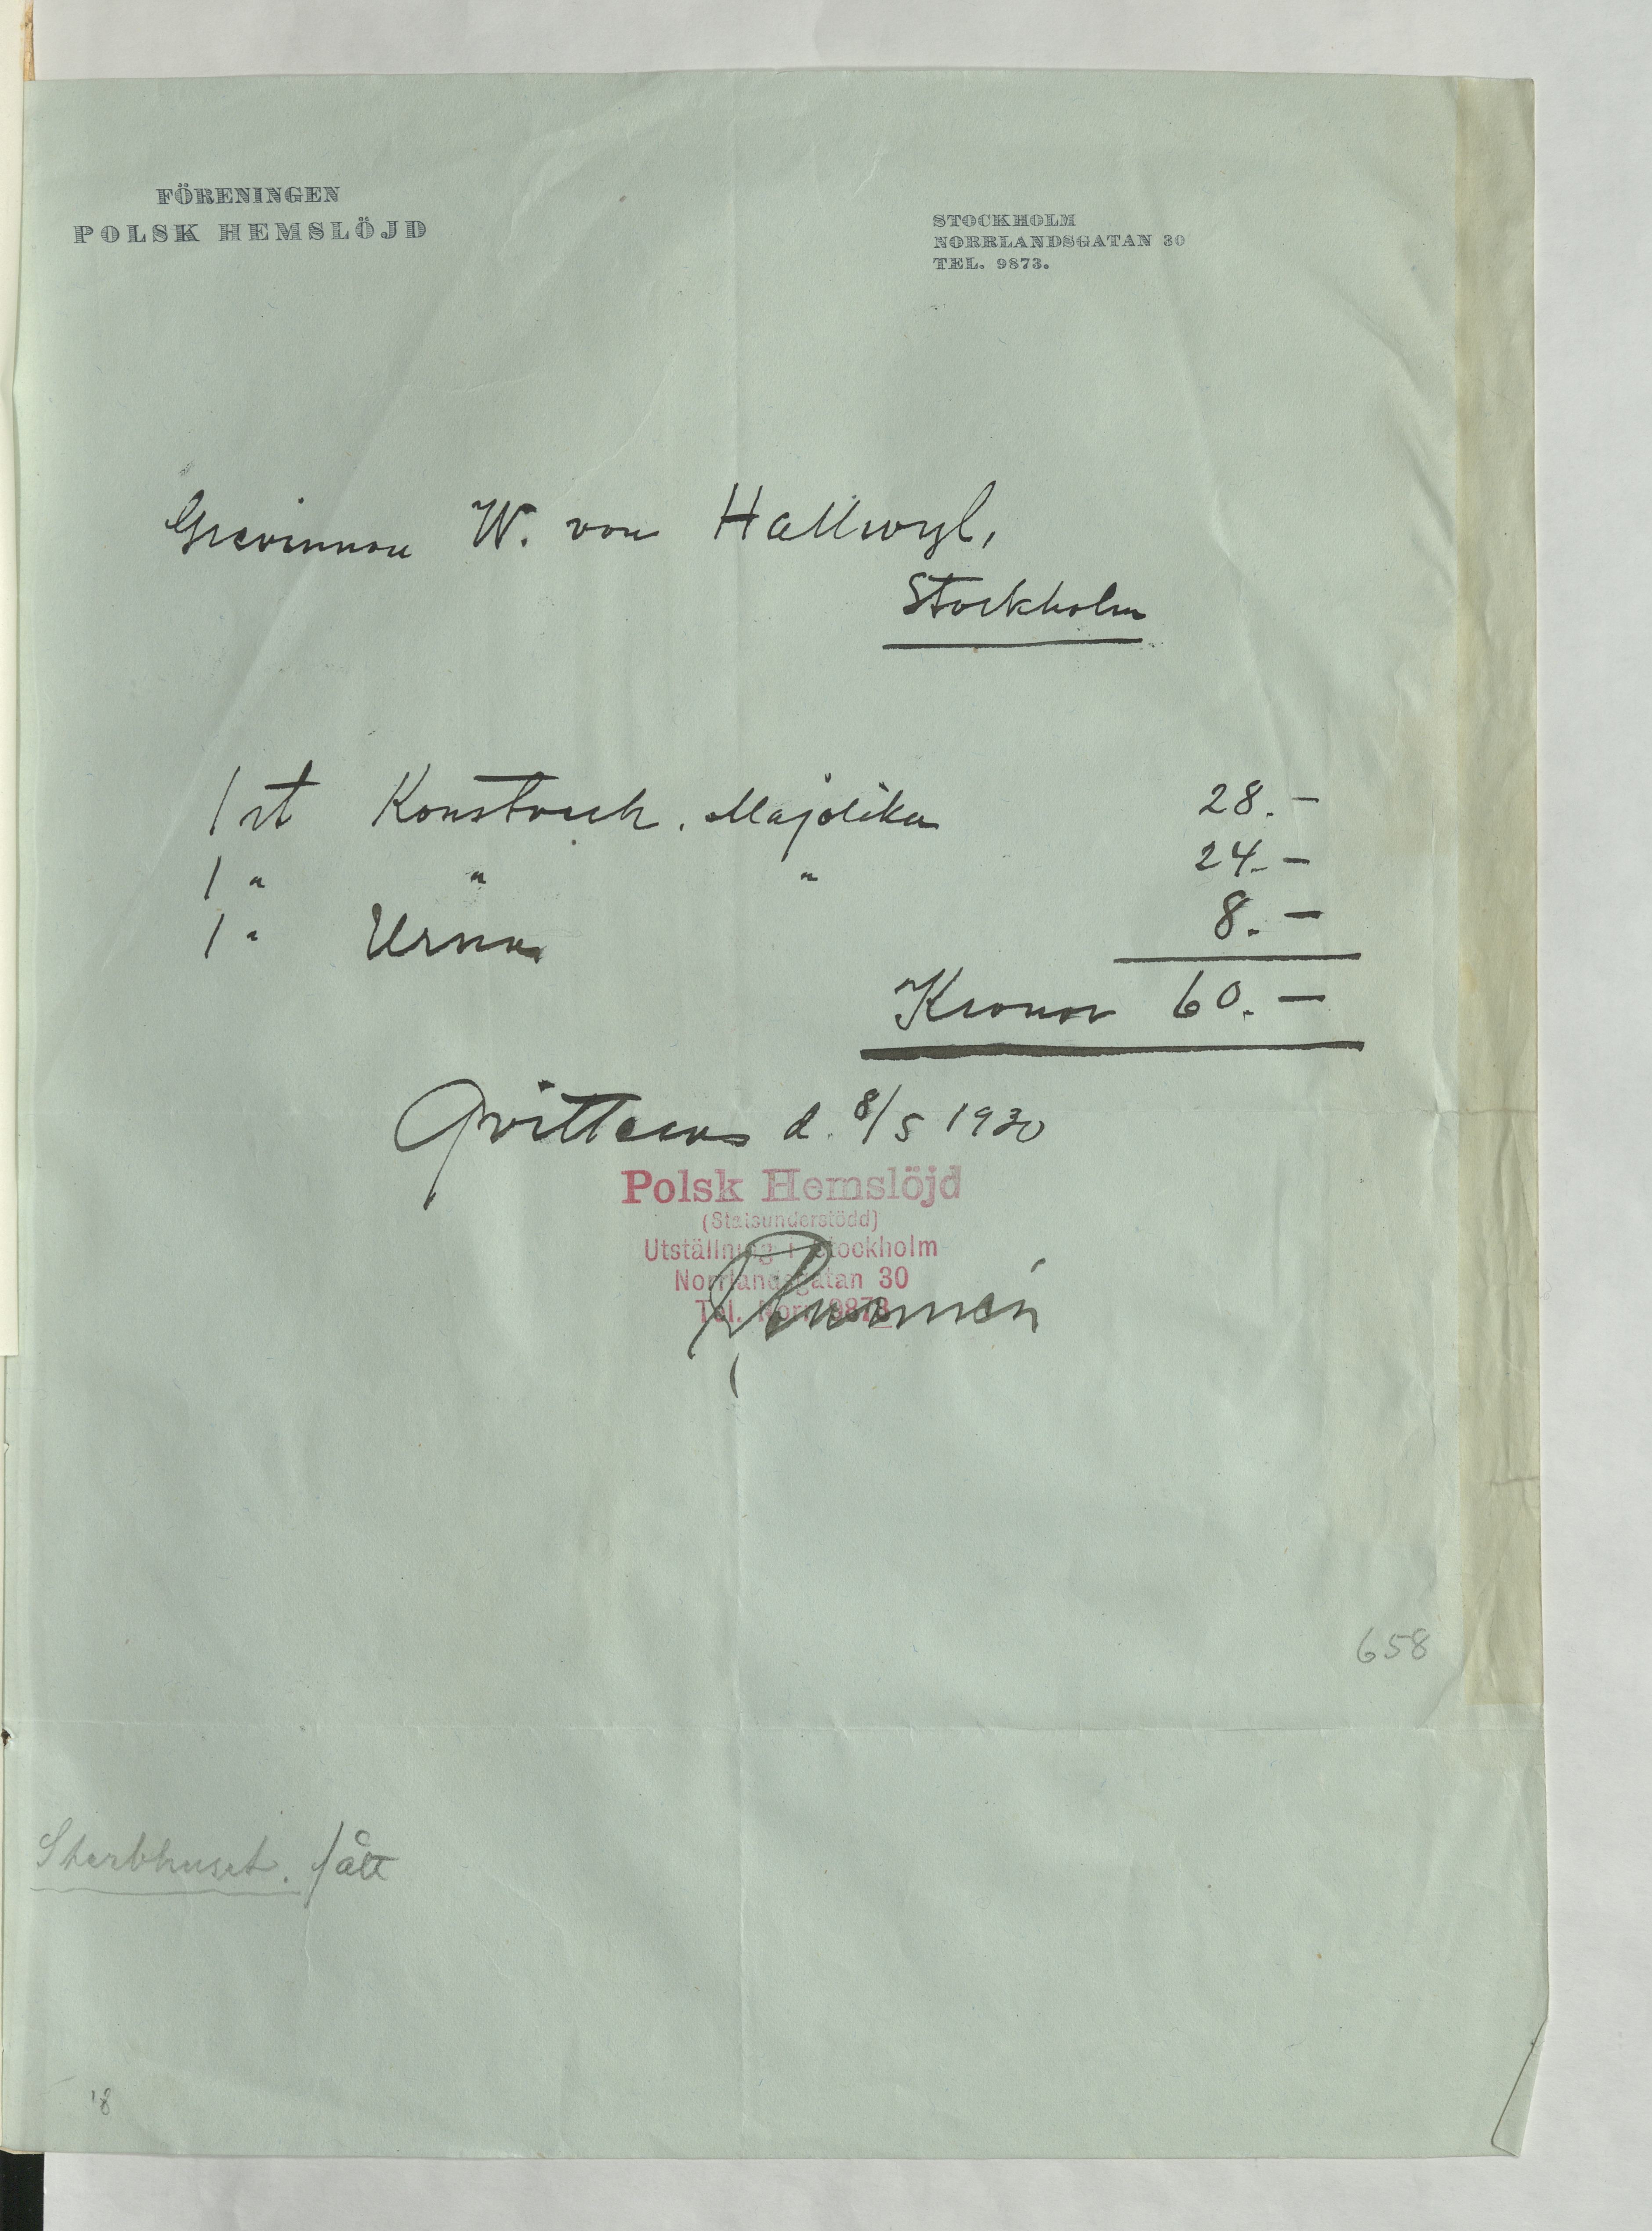 FÖRENINGEN
POLSK HEMSLÖJD
STOCKHOLM
NORRLANDSGATAN 30
TEL. 9873.
Grevinnan W. von Hallwyl,
Stockholm
1 st Konstvas. Majolika 28.-
1 " " " 24.-
1 " Urna 8.-
Kronor 60.-
Qvitteras d. 8/5 1920
Polsk Hemslöjd
(Statsunderstödd)
Utställning i Stockholm
Norrlandsgatan 30
Tel. Norr 9873
658
Sterbhuset.
18